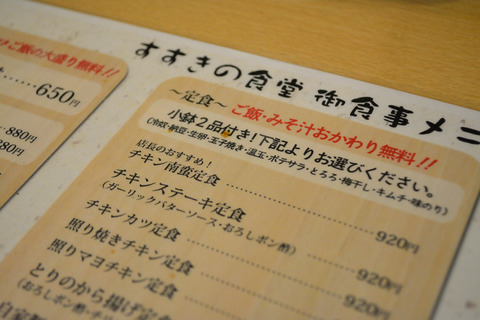 ご飯の大盛り無料!!
650円
880円
880円
すすきの食堂 御食事メニ
～定食～ ご飯・みそ汁おかわり無料!!
小鉢2品付き!下記よりお選びください。
(冷奴・納豆・生卵・玉子焼き・温玉・ポテサラ・とろろ・梅干し・キムチ・味のり)
店長のおすすめ!
チキン南蛮定食
920円
チキンステーキ定食
(ガーリックバターソース・おろしポン酢)
920円
チキンカツ定食
920円
照り焼きチキン定食
920円
照りマヨチキン定食
とりのから揚げ定